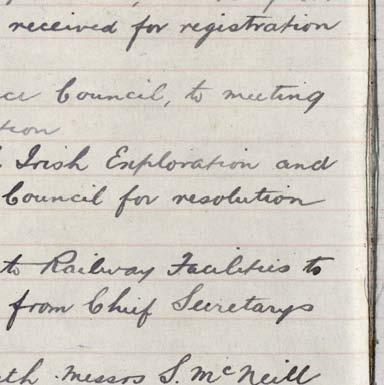 received for registration
Council, to meeting
tion
Irish Exploration and
Council for resolution
to Railway Facilities to
from Chief Secretarys
Messrs S. McNeill